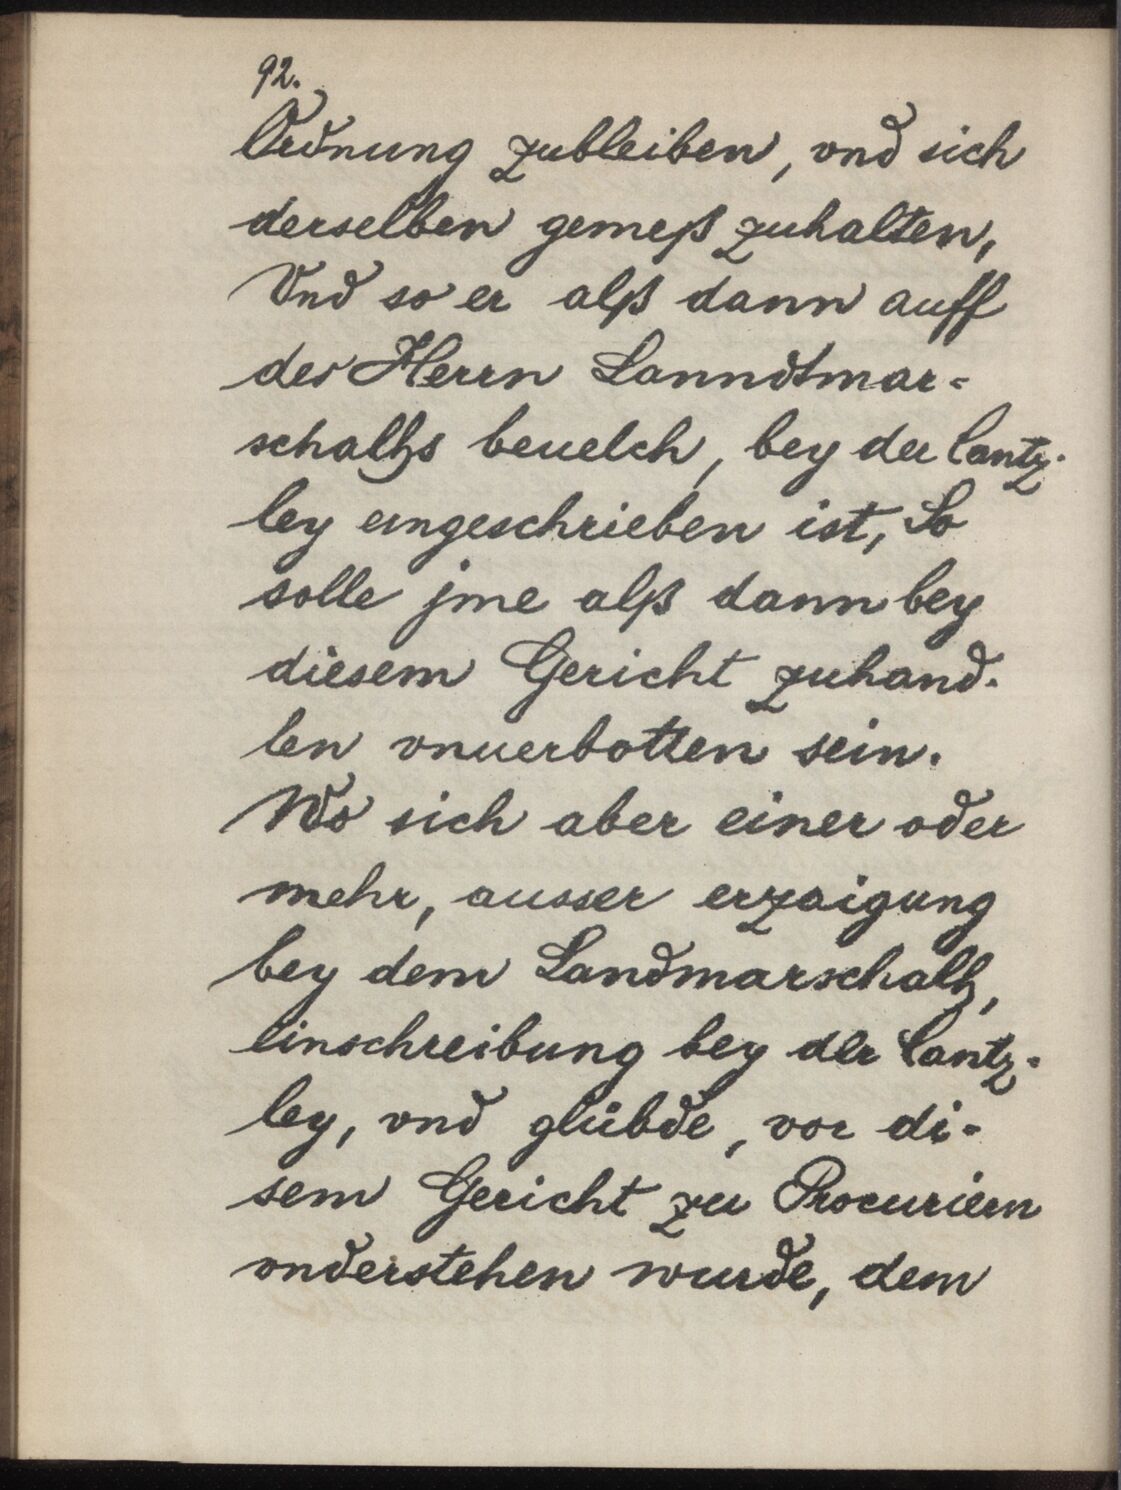 92.
Ordnung zubleiben, vnd sich
derselben gemeß zuhalten,
Vnd so er alß dann auff
des Herrn Lanndtmar-
schalhs beuelch, bey der Cantz-
ley eingeschrieben ist, So
solle jme alß dann bey
diesem Gericht zuhand-
len vnuerbotten sein.
Wo sich aber einer oder
mehr, ausser erzaigung
bey dem Landmarschalh,
einschreibung bey der Cantz-
ley, vnd glübde, vor di-
sem Gericht zu Procuriern
vnderstehen wurde, dem